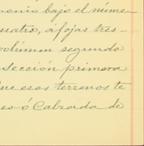 monio bajo el núme
uatro, a fojas tres-
volúmen segundo
sección primera
que esos terrenos te
es ó Calzada de